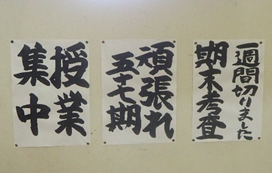 一週間切りました
期末考査
頑張れ
五十七期
授業
集中